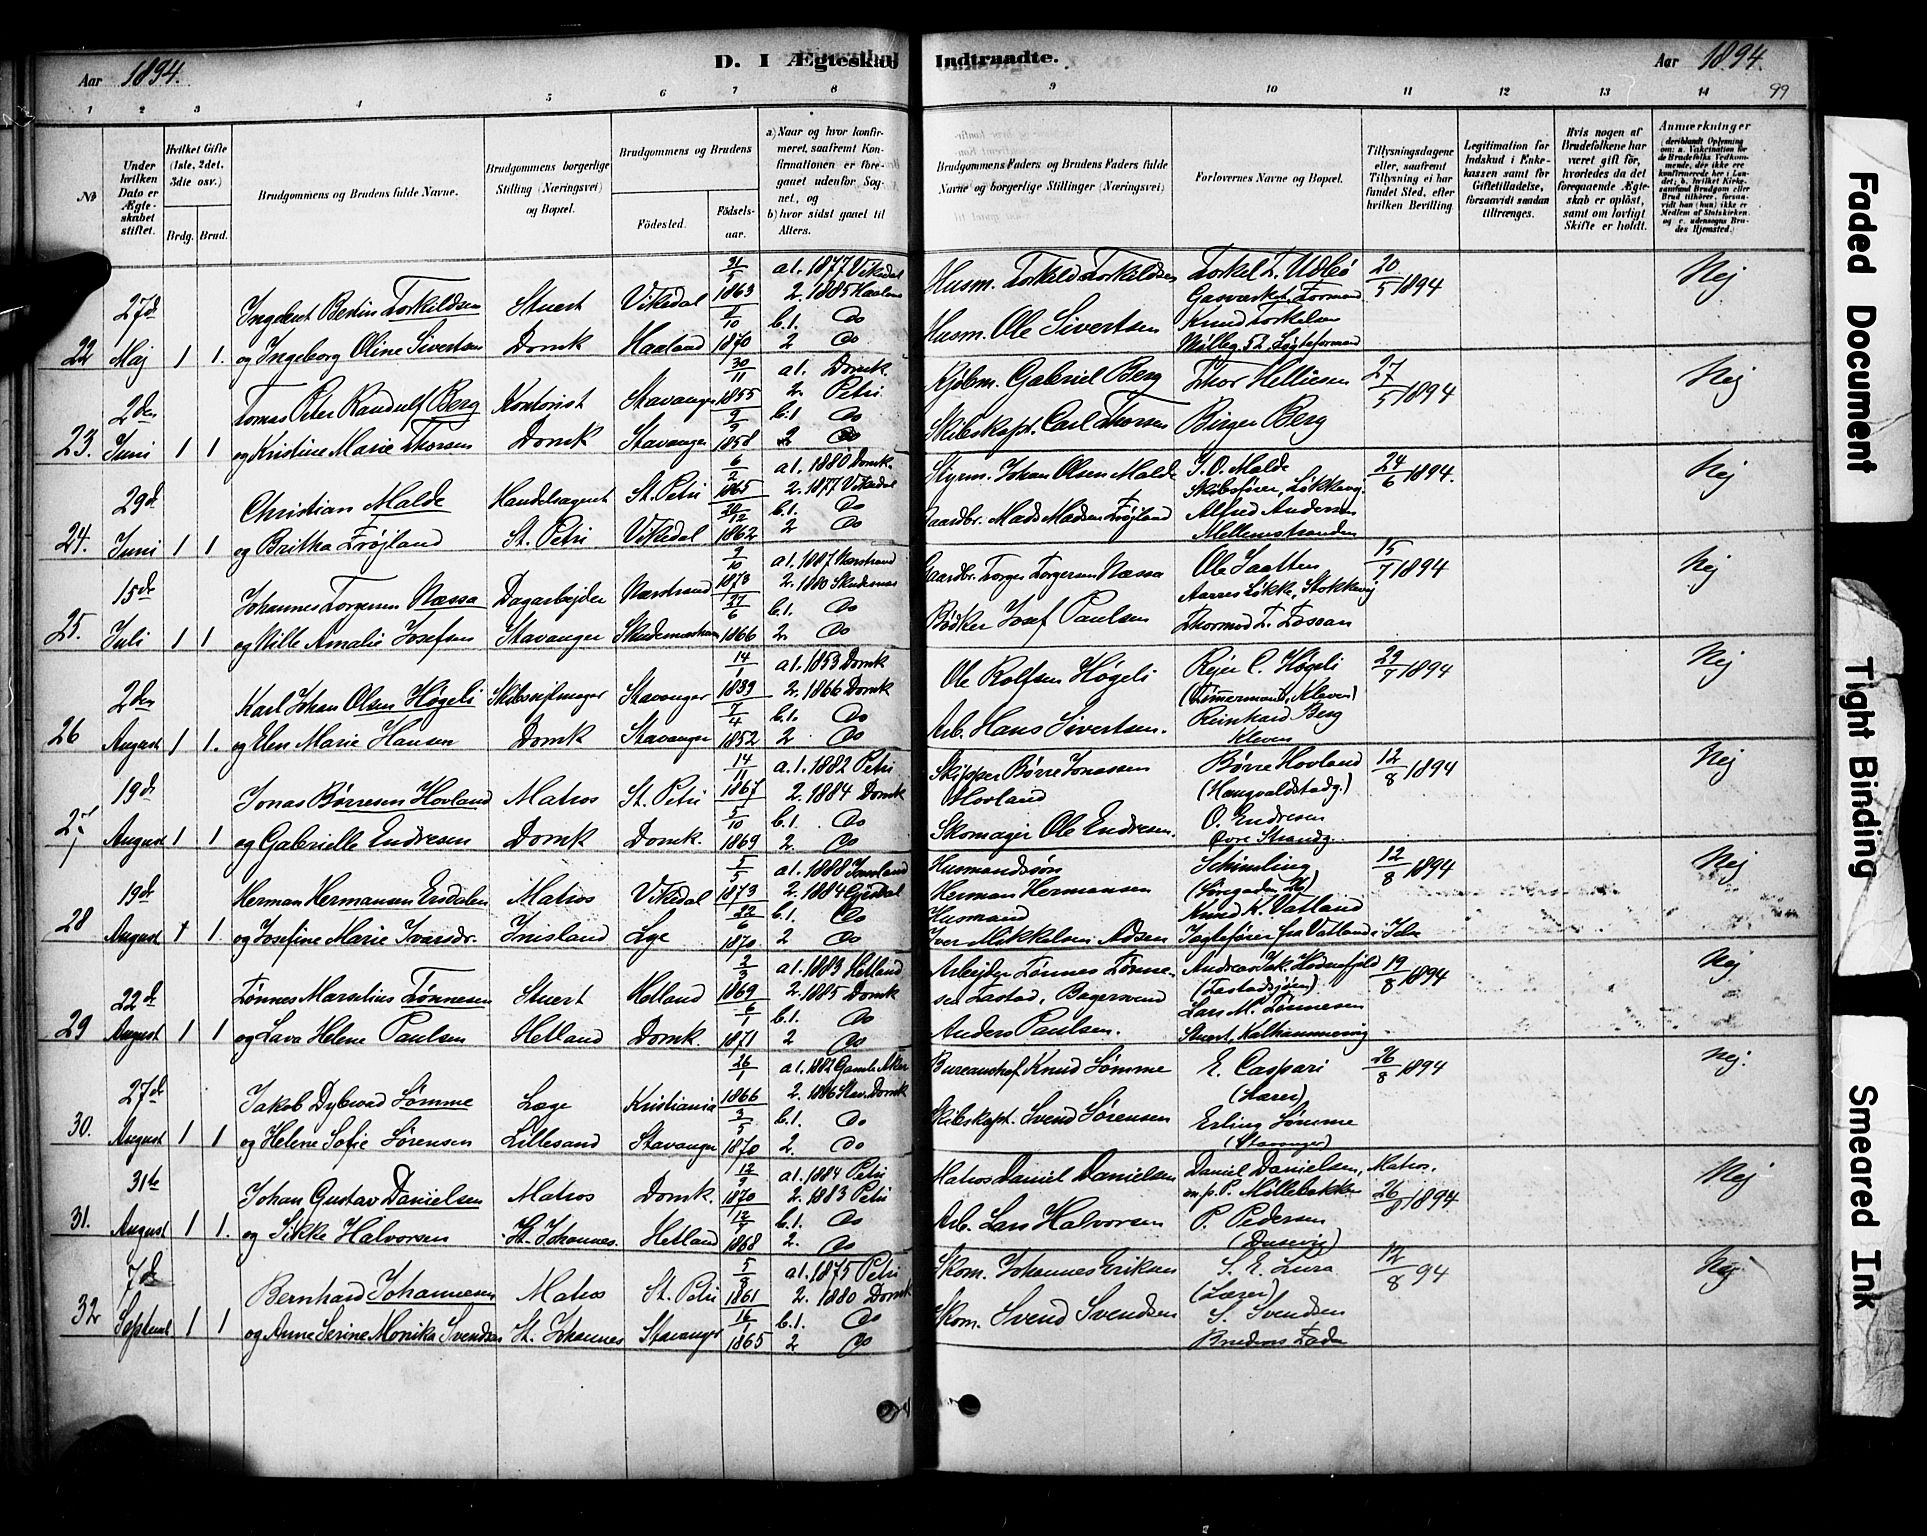 Aar 1894. D. I Ægteskab Indtraadte. Aar 1894.
99
1 2 3 4 5 6 7 8 9 10 11 12 13 14
No
Under hvilken Dato er Ægteskabet stiftet.
Hvilket Gifte (1ste, 2det, 3die osv.)
Brdg. Brud.
Brudgommens og Brudens fulde Navne.
Brudgommens borgerlige Stilling (Næringsvei) og Bopæl.
Brudgommens og Brudens
Fødested. Fødselsaar.
a) Naar og hvor konfirmeret, saafremt Konfirmationen er foregaaet udenfor Sognet, og
b) hvor sidst gaaet til Alters.
Brudgommens Faders og Brudens Faders fulde Navne og borgerlige Stillinger (Næringsvei)
Forlovernes Navne og Bopæl.
Tillysningsdagene eller, saafremt Tillysning ei har fundet Sted, efter hvilken Bevilling.
Legitimation for Indskud i Enkekassen samt for Giftetilladelse, forsaavidt saadan tiltrænges.
Hvis nogen af Brudefolkene har været gift før, hvorledes da det foregaaende Ægteskab er opløst, samt om lovligt Skifte er holdt.
Anmærkninger
22 27d Maj 1 1. Ingebret Bertin Torkildsen Stuert Vikedal 31/5 1863 a 1. 1877 Vikedal
og Ingeborg Oline Sivertsen Domk Haaland 1870 2. 1885 Haaland b. 1. Do 2 Do
Husm. Torkild Torkildsen
Husm. Ole Sivertsen
Knud Torkelsen
20/5 1894 Nej
23. 2den Juni 1 1 Tomas Peter Randulf Berg Kontorist Stavanger 30/11 1855 a 1. Domk.
og Kristine Marie Thorsen Domk Stavanger 9/9 1858 2. Petri b. 1. Do 2 Do
Kjøbm. Gabriel Berg
Skibskapt. Carl Thorsen
Thor Helliesen
Birger Berg
27/5 1894 Nej
24. 29d Juni 1 1 Christian Malde Handelsagent St. Petri 6/2 1865 a 1. 1880 Domk.
og Britha Frøjland St. Petri Vikedal 1862 2. 1877 Vikedal b. 1. Do 2 Do
Styrm. Johan Olsen Malde
Gaardbr. Mads Madsen Frøjland
J. O. Malde
Skibsfører, Løkkevej.
Alfred Andersen
Mellemstranden
24/6 1894. Nej
25. 15de Juli 1 1 Johannes Torgersen Næssa Dagarbejder Nærstrand 9/10 1873 a 1. 1887 Nærstrand
og Nille Amalie Josefsen Stavanger 27/6 1866 2. 1880 Skudesnæs b. 1. Do 2. Do
Gaardbr. Torger Torgersen Næssa
Bødker Josef Paulsen
Ole Saatten
15/7 1894 Nej
26 2den August 1 1. Karl Johan Olsen Høgeli Skibssejlmager Stavanger 14/1 1839 a 1. 1853 Domk
og Elen Marie Hansen Domk Stavanger 7/4 1852 2. 1866 Domk b. 1. Do 2 Do
Ole Rolfsen Høgeli
Arb. Hans Sivertsen.
Rejer C. Høgeli
(Tømmermand, Kleven)
Reinhard Berg
Kleven
29/7 1894 Nej
27 19d August 1 1 Jonas Børresen Hovland Matros St. Petri 14/11 1867 a. 1. 1882 Petri
og Gabrielle Endresen Domk Domk. 5/10 1869 2. 1884 Domk b. 1. Do 2. Do
Skipper Børre Jonassen Hovland
Skomager Ole Endresen.
Børre Hovland
O. Endresen
Øvre Strandg.
12/8 1894 Nej
28 19d August 1 1. Herman Hermansen Ersdalen Matros Vikedal 5/5 1873 a 1. 1888 Imsland
og Josefine Marie Ivarsdr. Imsland Lye 22/6 1870 2. 1884 Gjesdal b. 1. Do 2 Do
Husmandssøn
Herman Hermansen
Husmand
Iver Mikkelsen
Knud K. Vatland
12/8 1894 Nej
29 22d August 1 1 Tønnes Marselius Tønnesen Stuert Hetland 2/3 1869 a 1. 1883 Hetland
og Lava Helene Paulsen Hetland Domk. 6/1 1871 2. 1885 Domk b. 1. Do 2 Do
Arbejder Tønnes Tønnesen Tastad,
Anders Paulsen.
Lars M. Tønnesen
19/8 1894 Nej
30. 27de August 1 1 Jakob Dybwad Sømme Læge Kristiania 26/1 1866 a 1. 1882 Gamle Aker
og Helene Sofie Sørensen Lillesand Stavanger 3/5 1870 2. 1886 Stav. Domk b. 1. Do 2. Do
Bureauchef Knud Sømme
Skibskapt. Svend Sørensen
E. Caspari
(Lærer)
Erling Sømme
(Stavanger)
26/8 1894 Nej.
31. 31te August 1 1. Johan Gustav Danielsen Matros Domk. 12/9 1870 a 1. 1884 Petri
og Sikke Halvorsen St. Johannes. Hetland 1868 2. 1883 Petri b. 1. Do 2. Do
Matros Daniel Danielsen
Arb. Lars Halvorsen
Daniel Danielsen, Matros.
P. Pedersen
(Dusevig)
26/8 1894 Nej
32 7d Septemb 1 1 Bernhard Johannesen Matros St. Petri 5/8 1861 a 1. 1875 Petri
og Anne Serine Monika Svendsen St. Johannes Stavanger 16/1 1865 2. 1880 Domk b. 1. Do 2 Do
Skom. Johannes Eriksen
Skom. Svend Svendsen
S. E. Lura
(Lærer)
S. Svendsen
Brudens Fader
12/8 94 Nej
Faded Document
Tight Binding
Smeared Ink